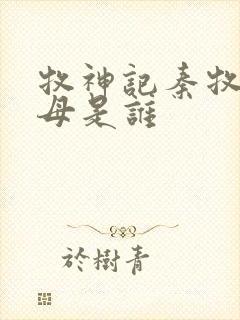 牧神記秦牧
母是誰
於樹青